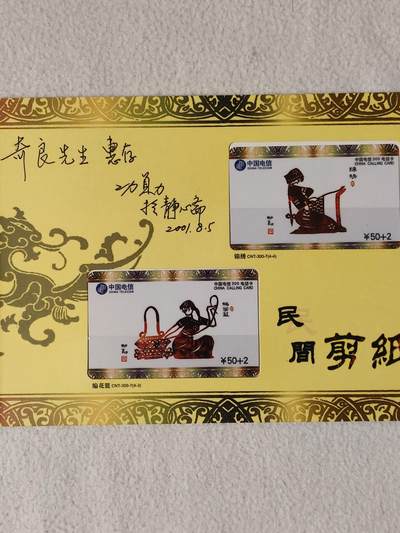 奇良先生 惠存
於静心斋
2001.8.5
中国电信
CHINA TELECOM
中国电信 300 电话卡
CHINA CALLING CARD
¥50+2
CNT-300-7(4-4)
中国电信
CHINA TELECOM
中国电信 300 电话卡
CHINA CALLING CARD
¥50+2
編花籃
民間剪紙